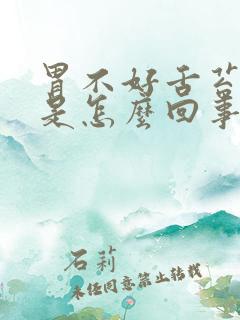 胃不好舌苔
是怎麼回事
石莉
未经同意禁止转载